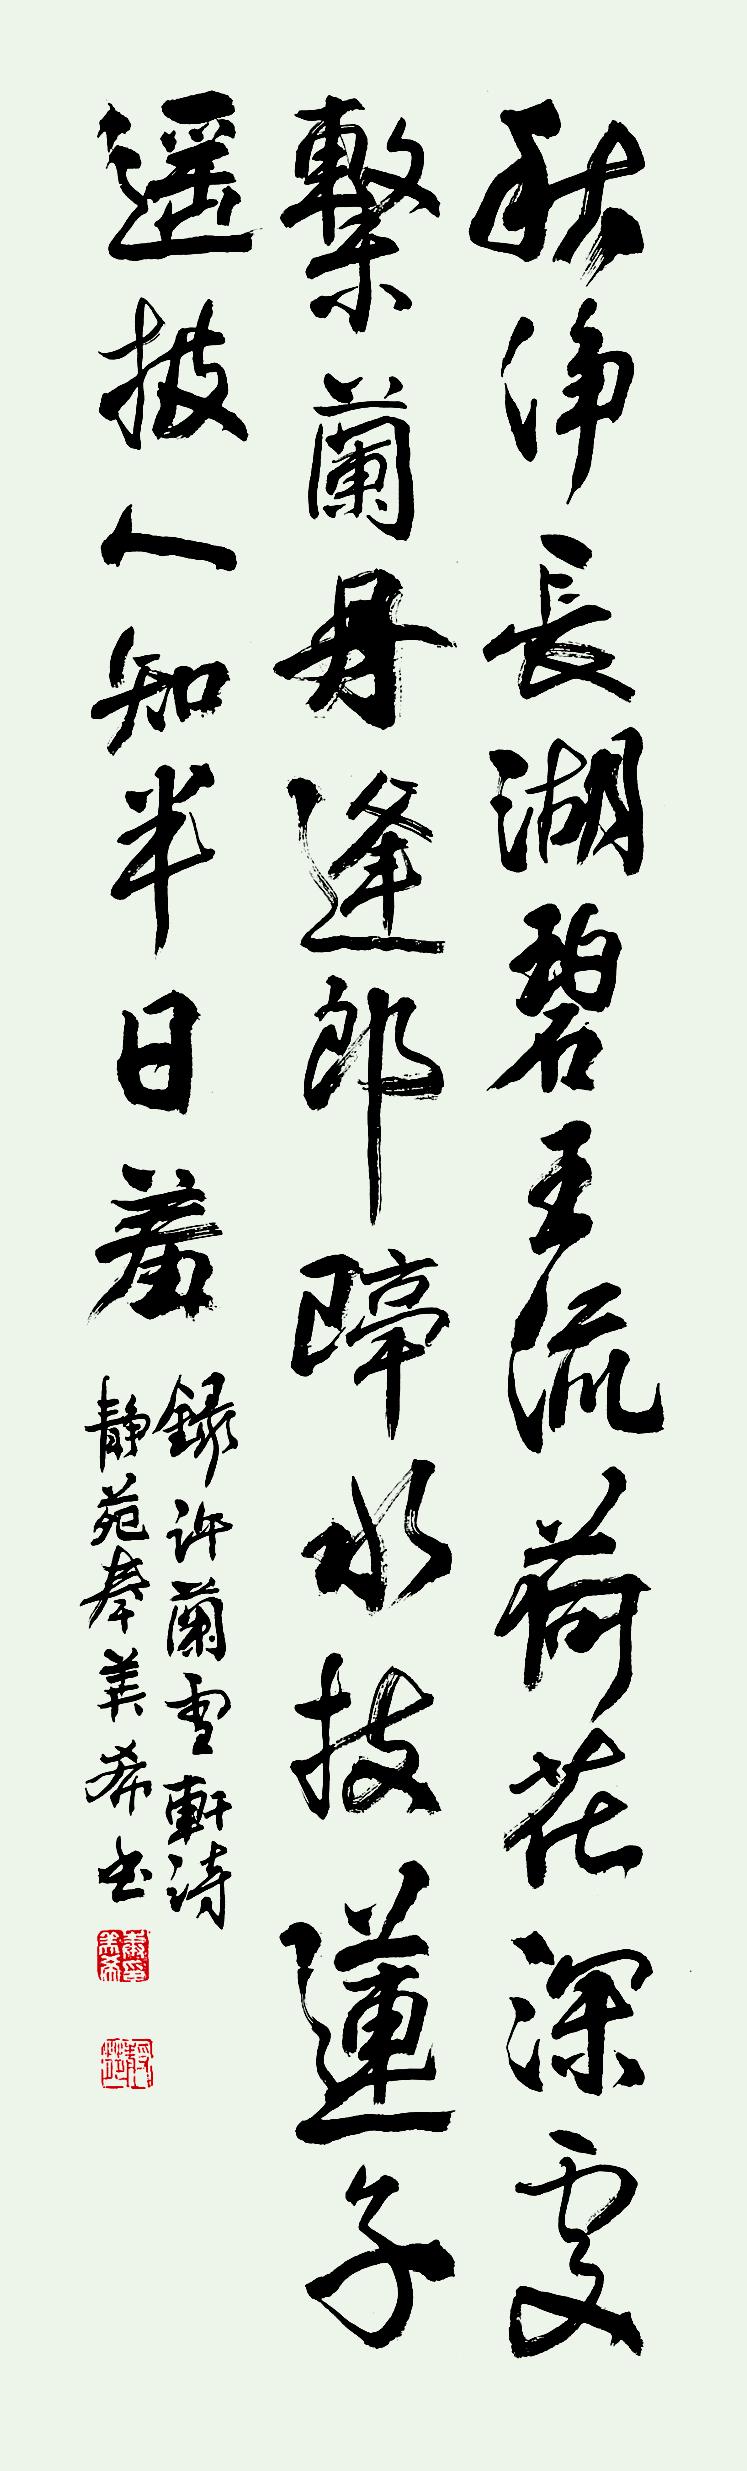 秋淨長湖碧玉流荷花深處
繫蘭舟逢郎隔水投蓮子
遙被人知半日羞
錄許蘭雪軒詩
靜苑奉美希書